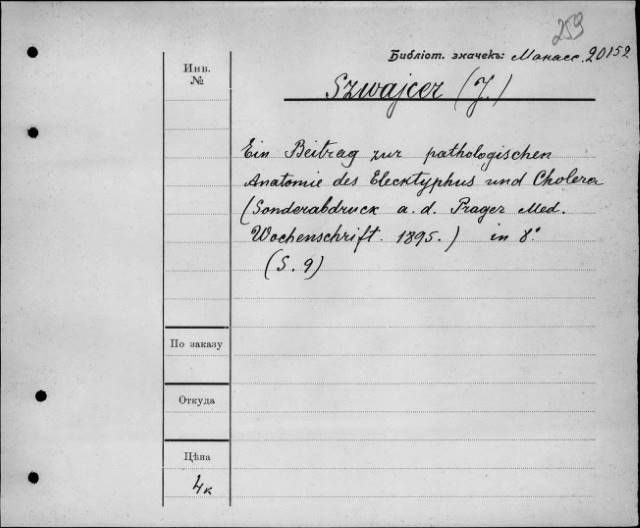 259
Библіот. значекъ: Манасс. 20152
Инв.
№
Szwajcer (J.)
Ein Beitrag zur pathologischen
Anatomie des Elecktyphus und Cholera
(Sonderabdruck a. d. Prager Med.
Wochenschrift. 1895.) in 8°
(S. 9)
По заказу
Откуда
Цѣна
4к